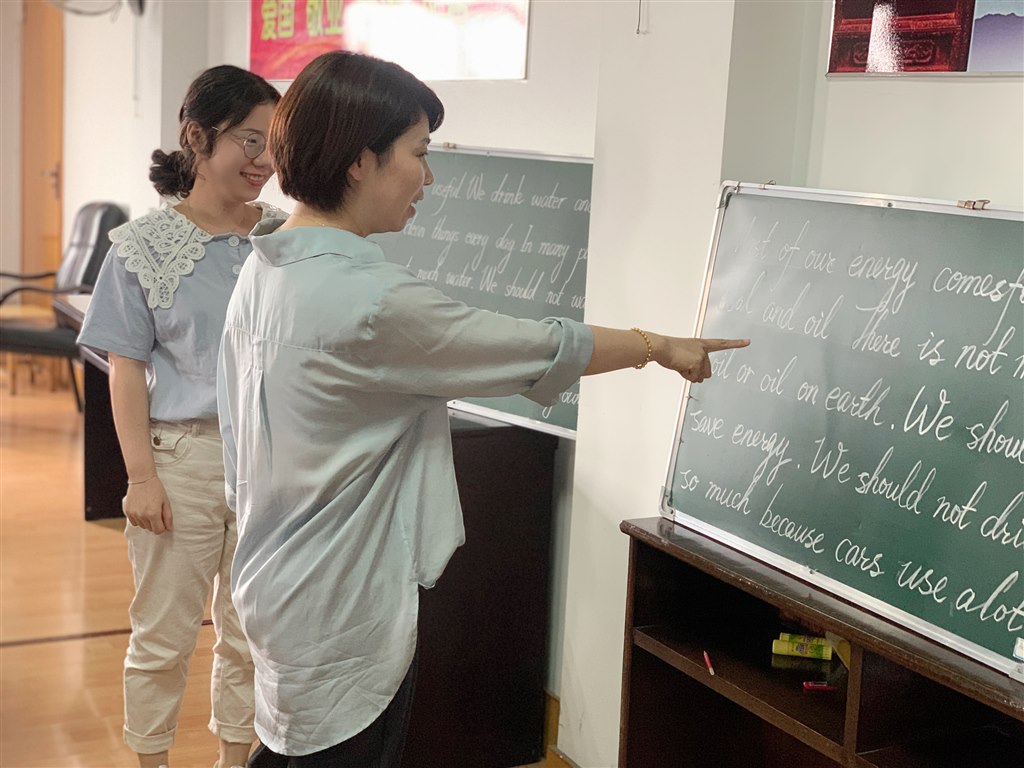 爱国 敬业
useful. We drink water and
clean things every day. In many
much water. We should not
of our energy comes
and oil. There is not
or oil on earth. We shou
save energy. We should not dri
so much because cars use a lot